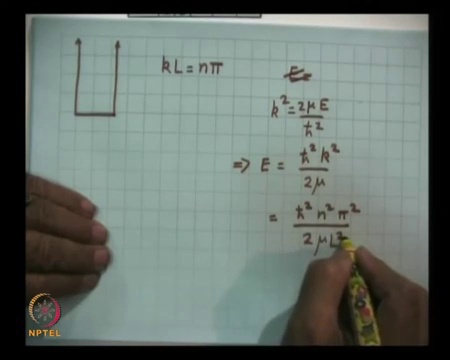 kL = nπ
E=
k² = 2μE/ħ²
⇒ E = ħ²k²/2μ
= ħ²n²π²/2μL²
NPTEL